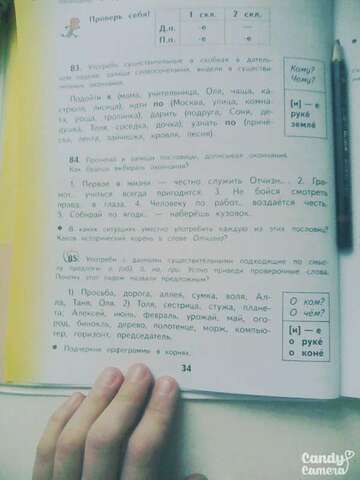 Проверь себя!
1 скл. 2 скл.
Д.п. -е —
П.п. -е -е
83. Употреби существительные в скобках в датель-
ном падеже, запиши словосочетания, выдели в существи-
тельных окончания.
Кому?
Чему?
Подойти к (мама, учительница, Оля, чаща, ка-
стрюля, лисица), ехати по (Москва, улица, комна-
та, роща, тропинка), дарить (подруга, Соня, де-
душка, Толя, соседка, дочка), узнать по (причё-
ска, лента, зайчишка, кровля, песня).
[и] — е
руке́
земле́
84. Прочитай и запиши пословицы, дописывая окончания.
Как будешь выбирать окончания?
1. Первое в жизни — честно служить Отчизн... 2. Гра-
мот.. учиться всегда пригодится. 3. Не бойся смотреть
правд.. в глаза. 4. Человеку по работ.. воздаётся честь.
5. Собирай по ягодк.. — наберёшь кузовок.
• В каких ситуациях уместно употребить каждую из этих пословиц?
Каков исторический корень в слове Отчизна?
85. Употреби с данными существительными подходящие по смы-
слу предлоги о (об), в, на, при. Устно приведи проверочные слова.
Почему этот падеж назвали предложным?
1) Просьба, дорога, аллея, сумка, воля, Ал-
ла, Таня, Оля. 2) Толя, сестрица, стужа, плане-
та; Алексей, июнь, февраль, урожай, май, ого-
род, бинокль, дерево, полотенце, морж, компью-
тер, горизонт, председатель.
О ком?
О чём?
[и] — е
о руке́
о коне́
• Подчеркни орфограммы в корнях.
34
Candy
Camera